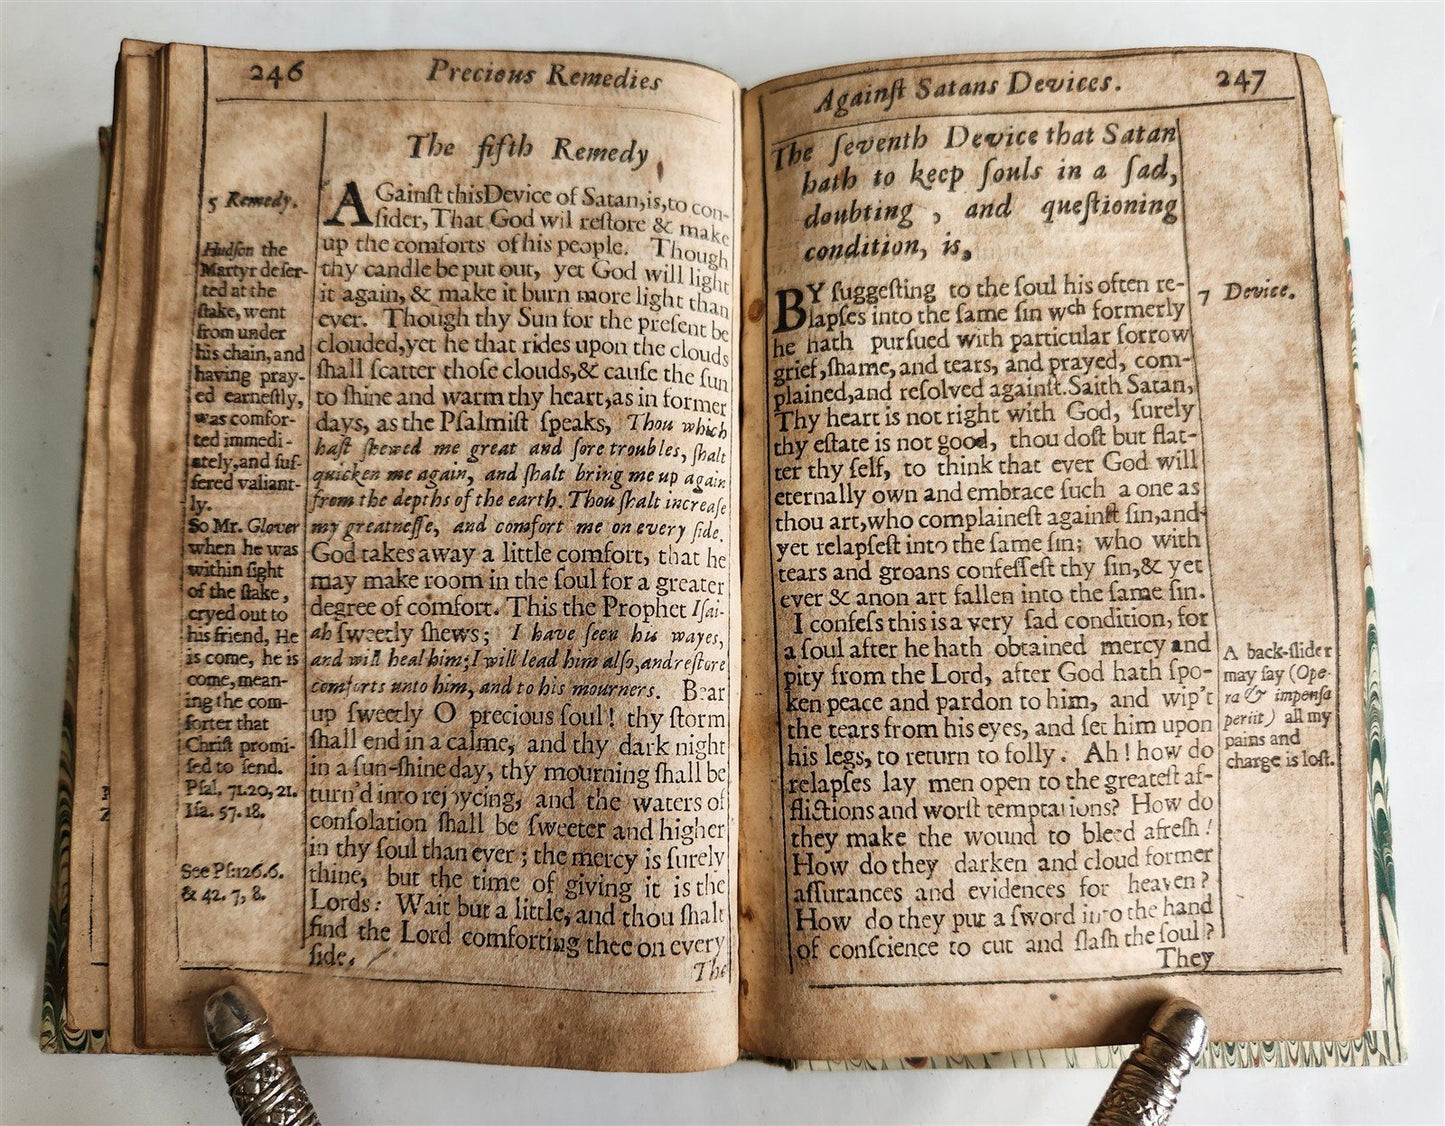 246
Precious Remedies
The fifth Remedy,
5 Remedy.
AGainſt thisDevice of Satan,is,to con-
ſider, That God wil reſtore & make
up the comforts of his people. Though
thy candle be put out, yet God will light
it again, & make it burn more light than
ever. Though thy Sun for the preſent be
clouded,yet he that rides upon the clouds
ſhall ſcatter thoſe clouds,& cauſe the ſun
to ſhine and warm thy heart,as in former
days, as the Pſalmiſt ſpeaks, Thou which
haſt ſhewed me great and ſore troubles, ſhalt
quicken me again, and ſhalt bring me up again
from the depths of the earth. Thou ſhalt increaſe
my greatneſſe, and comfort me on every ſide.
God takes away a little comfort, that he
may make room in the ſoul for a greater
degree of comfort. This the Prophet Iſai-
ah ſweetly ſhews; I have ſeen his wayes,
and will heal him;I will lead him alſo,and reſtore
comforts unto him, and to his mourners. Bear
up ſweetly O precious ſoul! thy ſtorm
ſhall end in a calme, and thy dark night
in a ſun-ſhine day, thy mourning ſhall be
turn'd into rejoycing, and the waters of
conſolation ſhall be ſweeter and higher
in thy ſoul than ever; the mercy is ſurely
thine, but the time of giving it is the
Lords: Wait but a little, and thou ſhalt
find the Lord comforting thee on every
ſide.
The
Hudſon the
Martyr deſer-
ted at the
ſtake, went
from under
his chain, and
having pray-
ed earneſtly,
was comfor-
ted immedi-
ately,and ſuf-
fered valiant-
ly.
So Mr. Glover
when he was
within ſight
of the ſtake,
cryed out to
his friend, He
is come, he is
come, mean-
ing the com-
forter that
Chriſt promi-
ſed to ſend.
Pſal. 71.20, 21.
Iſa. 57. 18.
See Pſ:126.6.
& 42. 7, 8.
Againſt Satans Devices.
247
The ſeventh Device that Satan
hath to keep ſouls in a ſad,
doubting, and queſtioning
condition, is,
BY ſuggeſting to the ſoul his often re-
lapſes into the ſame ſin wch formerly
he hath purſued with particular ſorrow
grief,ſhame, and tears, and prayed, com-
plained,and reſolved againſt.Saith Satan,
Thy heart is not right with God, ſurely
thy eſtate is not good, thou doſt but flat-
ter thy ſelf, to think that ever God will
eternally own and embrace ſuch a one as
thou art,who complaineſt againſt ſin,and
yet relapſeſt into the ſame ſin; who with
tears and groans confeſſeſt thy ſin,& yet
ever & anon art fallen into the ſame ſin.
I confeſs this is a very ſad condition, for
a ſoul after he hath obtained mercy and
pity from the Lord, after God hath ſpo-
ken peace and pardon to him, and wip't
the tears from his eyes, and ſet him upon
his legs, to return to folly. Ah! how do
relapſes lay men open to the greateſt af-
flictions and worſt temptations? How do
they make the wound to bleed afreſh!
How do they darken and cloud former
aſſurances and evidences for heaven?
How do they put a ſword into the hand
of conſcience to cut and ſlaſh the ſoul?
They
7 Device.
A back-ſlider
may ſay (Ope-
ra & impenſa
periit) all my
pains and
charge is loſt.